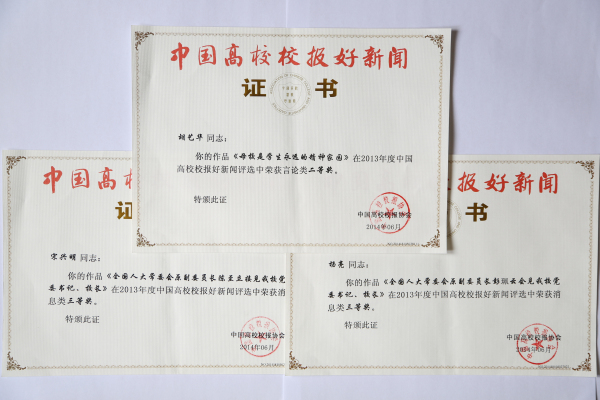 中国高校校报好新闻
证书
胡艺华 同志：
你的作品《母校是学生永远的精神家园》在2013年度中国
高校校报好新闻评选中荣获言论类二等奖。
特颁此证
中国高校校报协会
2014年06月
中国高
证
宋兴明 同志：
你的作品《全国人大常委会原副委员长陈至立接见我校党
委书记、校长》在2013年度中国高校校报好新闻评选中荣获消
息类三等奖。
特颁此证
中国高校校报协会
2014年06月
校报好新闻
书
杨亮 同志：
你的作品《全国人大常委会原副委员长彭珮云会见我校党
委书记、校长》在2013年度中国高校校报好新闻评选中荣获消
息类三等奖。
特颁此证
中国高校校报协会
2014年06月